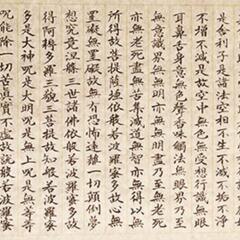 是舍利子是諸法空相不生不滅不垢不淨
不增不減是故空中無色無受想行識無眼
耳鼻舌身意無色聲香味觸法無眼界乃至
無意識界無無明亦無無明盡乃至無老死
亦無老死盡無苦集滅道無智亦無得以無
所得故菩提薩埵依般若波羅蜜多故心無
罣礙無罣礙故無有恐怖遠離一切顛倒夢
想究竟涅槃三世諸佛依般若波羅蜜多故
得阿耨多羅三藐三菩提故知般若波羅蜜
多是大神呪是大明呪是無上呪是無等等
呪能除一切苦真實不虛故說般若波羅蜜